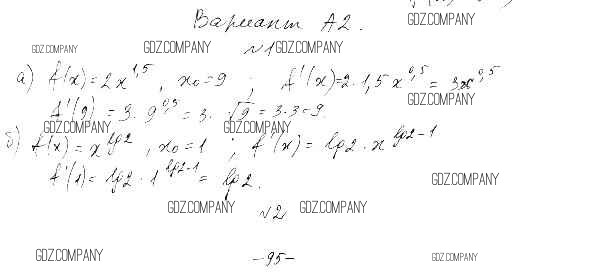 Вариант А2.
GDZ.COMPANY
GDZ.COMPANY GDZ.COMPANY №1 GDZ.COMPANY
а) f(x) = 2x^1,5, x₀ = 9 ; f'(x) = 2·1,5x^0,5 = 3x^0,5
GDZ.COMPANY
f'(9) = 3·9^0,5 = 3·√9 = 3·3 = 9.
GDZ.COMPANY GDZ.COMPANY
б) f(x) = x^lg2, x₀ = 1 ; f'(x) = lg2·x^lg2-1
f'(1) = lg2·1^lg2-1 = lg2.
GDZ.COMPANY
GDZ.COMPANY №2 GDZ.COMPANY
GDZ.COMPANY -95- GDZ.COMPANY